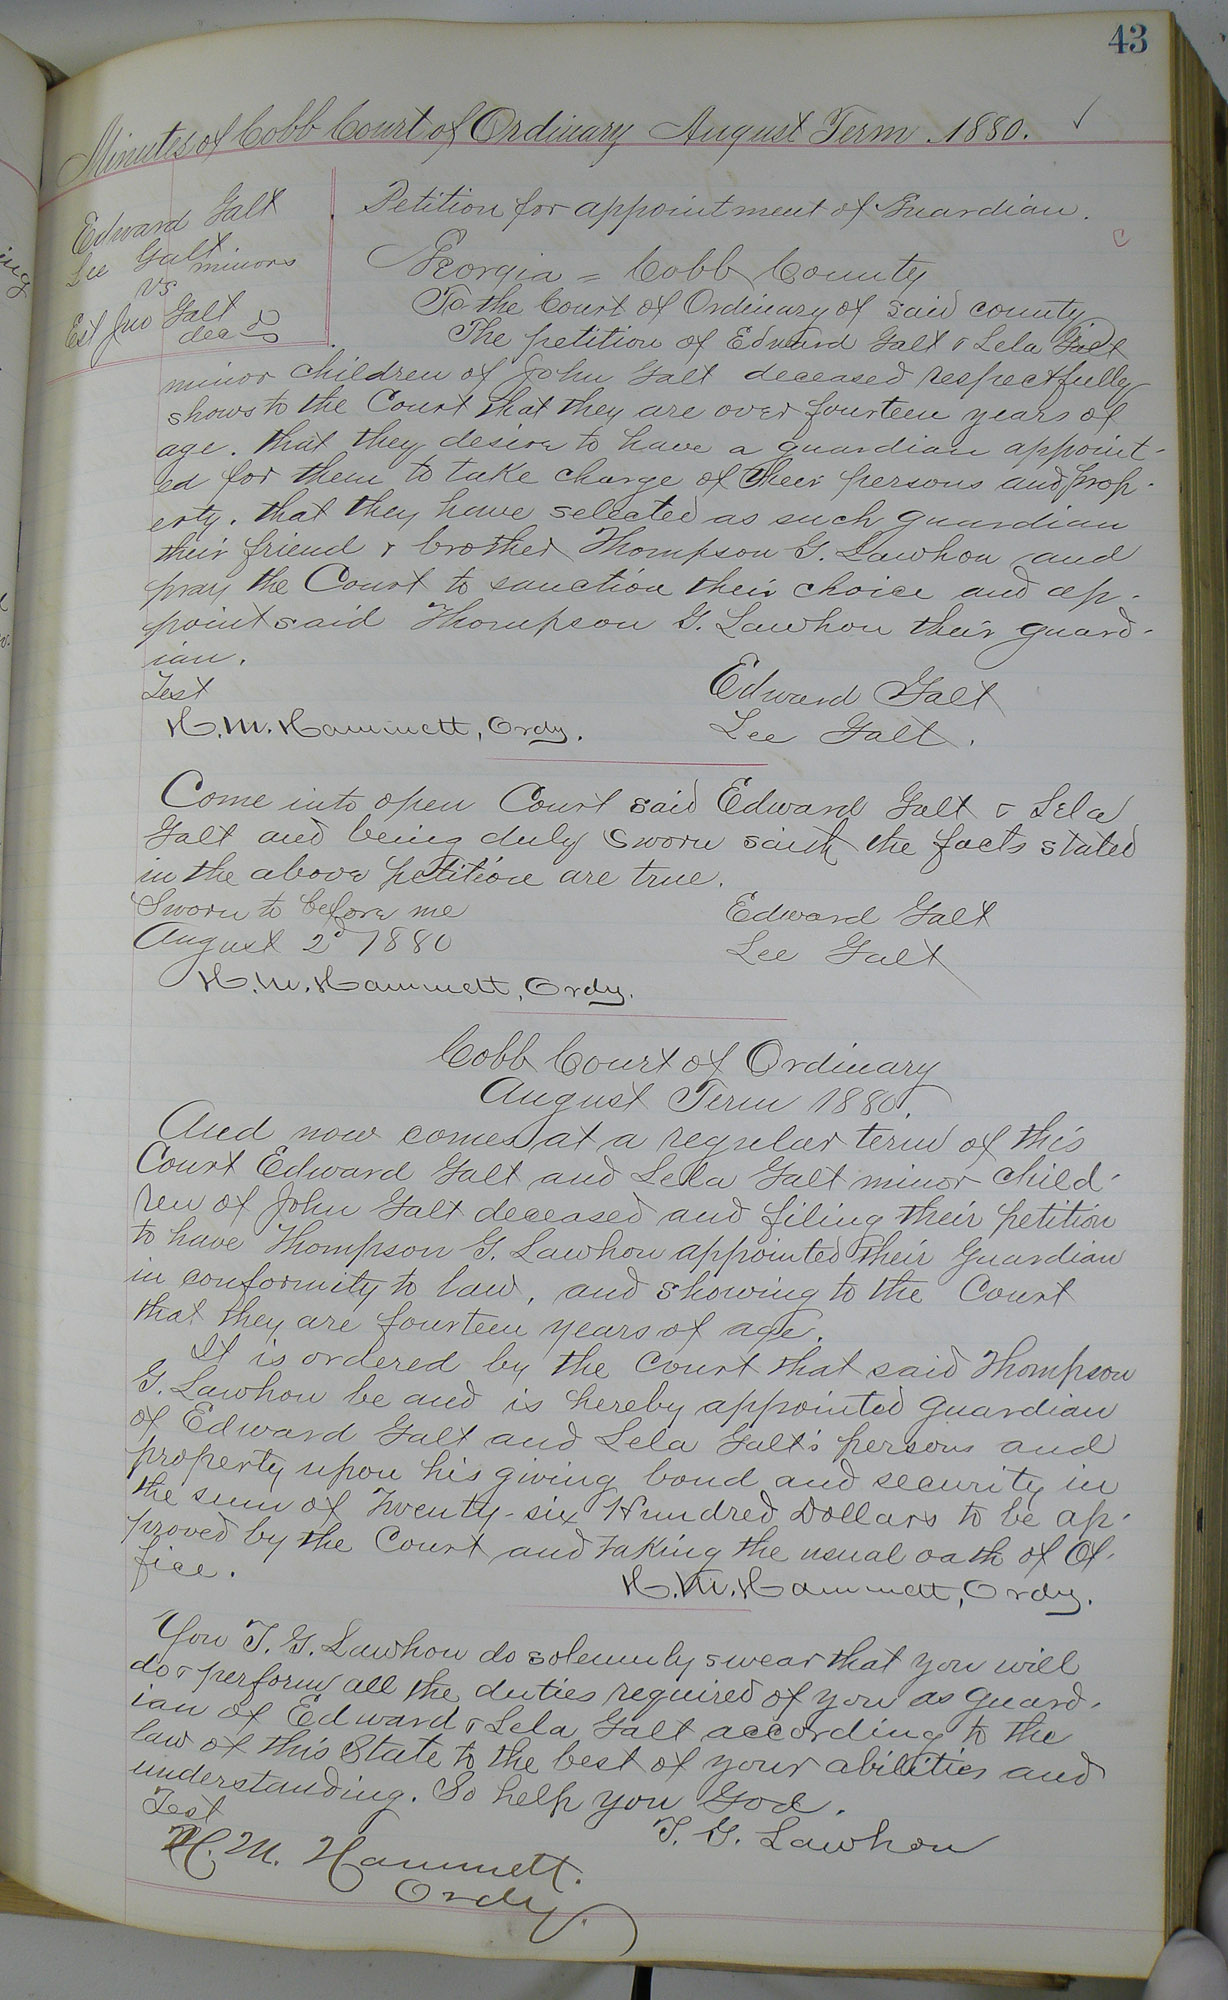 43
Minutes of Cobb Court of Ordinary August Term 1880.
Edward Galt
Lee Galt
minors
vs
Est Jno Galt
decd
Petition for appointment of Guardian.
C
Georgia = Cobb County
To the Court of Ordinary of said county
The petition of Edward Galt & Lela Galt
minor children of John Galt deceased respectfully
shows to the Court that they are over fourteen years of
age. that they desire to have a guardian appoint-
ed for them to take charge of their persons and prop-
erty. that they have selected as such guardian
their friend & brother Thompson G. Lawhon and
pray the Court to sanction their choice and ap-
point said Thompson G. Lawhon their guard-
ian.
Test
Edward Galt
H. M. Hammett, Ordy.
Lee Galt.
Come into open Court said Edward Galt & Lela
Galt and being duly sworn saith the facts stated
in the above petition are true.
Sworn to before me
Edward Galt
August 2d 1880
Lee Galt
H. M. Hammett, Ordy.
Cobb Court of Ordinary
August Term 1880.
And now comes at a regular term of this
Court Edward Galt and Lela Galt minor child-
ren of John Galt deceased and filing their petition
to have Thompson G. Lawhon appointed their Guardian
in conformity to law, and showing to the Court
that they are fourteen years of age.
It is ordered by the Court that said Thompson
G. Lawhon be and is hereby appointed Guardian
of Edward Galt and Lela Galt's persons and
property upon his giving bond and security in
the sum of Twenty-six Hundred Dollars to be ap-
proved by the Court and taking the usual oath of Of-
fice.
H. M. Hammett, Ordy.
You T. G. Lawhon do solemnly swear that you will
do & perform all the duties required of you as Guard-
ian of Edward & Lela Galt according to the
law of this State to the best of your abilities and
understanding. So help you God.
Test
T. G. Lawhon
H. M. Hammett.
Ordy.